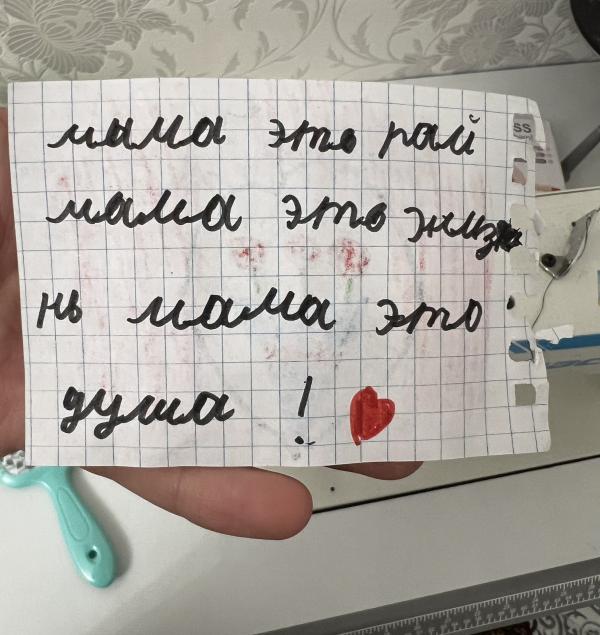 мама это рай
мама это жиз
нь мама это
душа !
SS